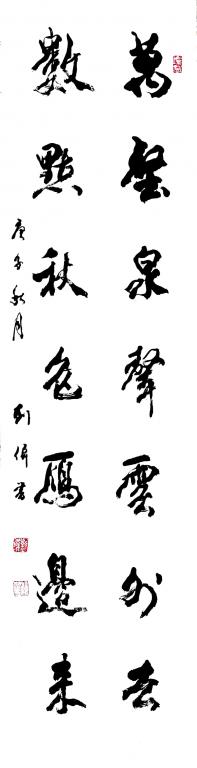 萬壑泉聲雲外去
數點秋色雁邊來
庚子秋月
劉偉書